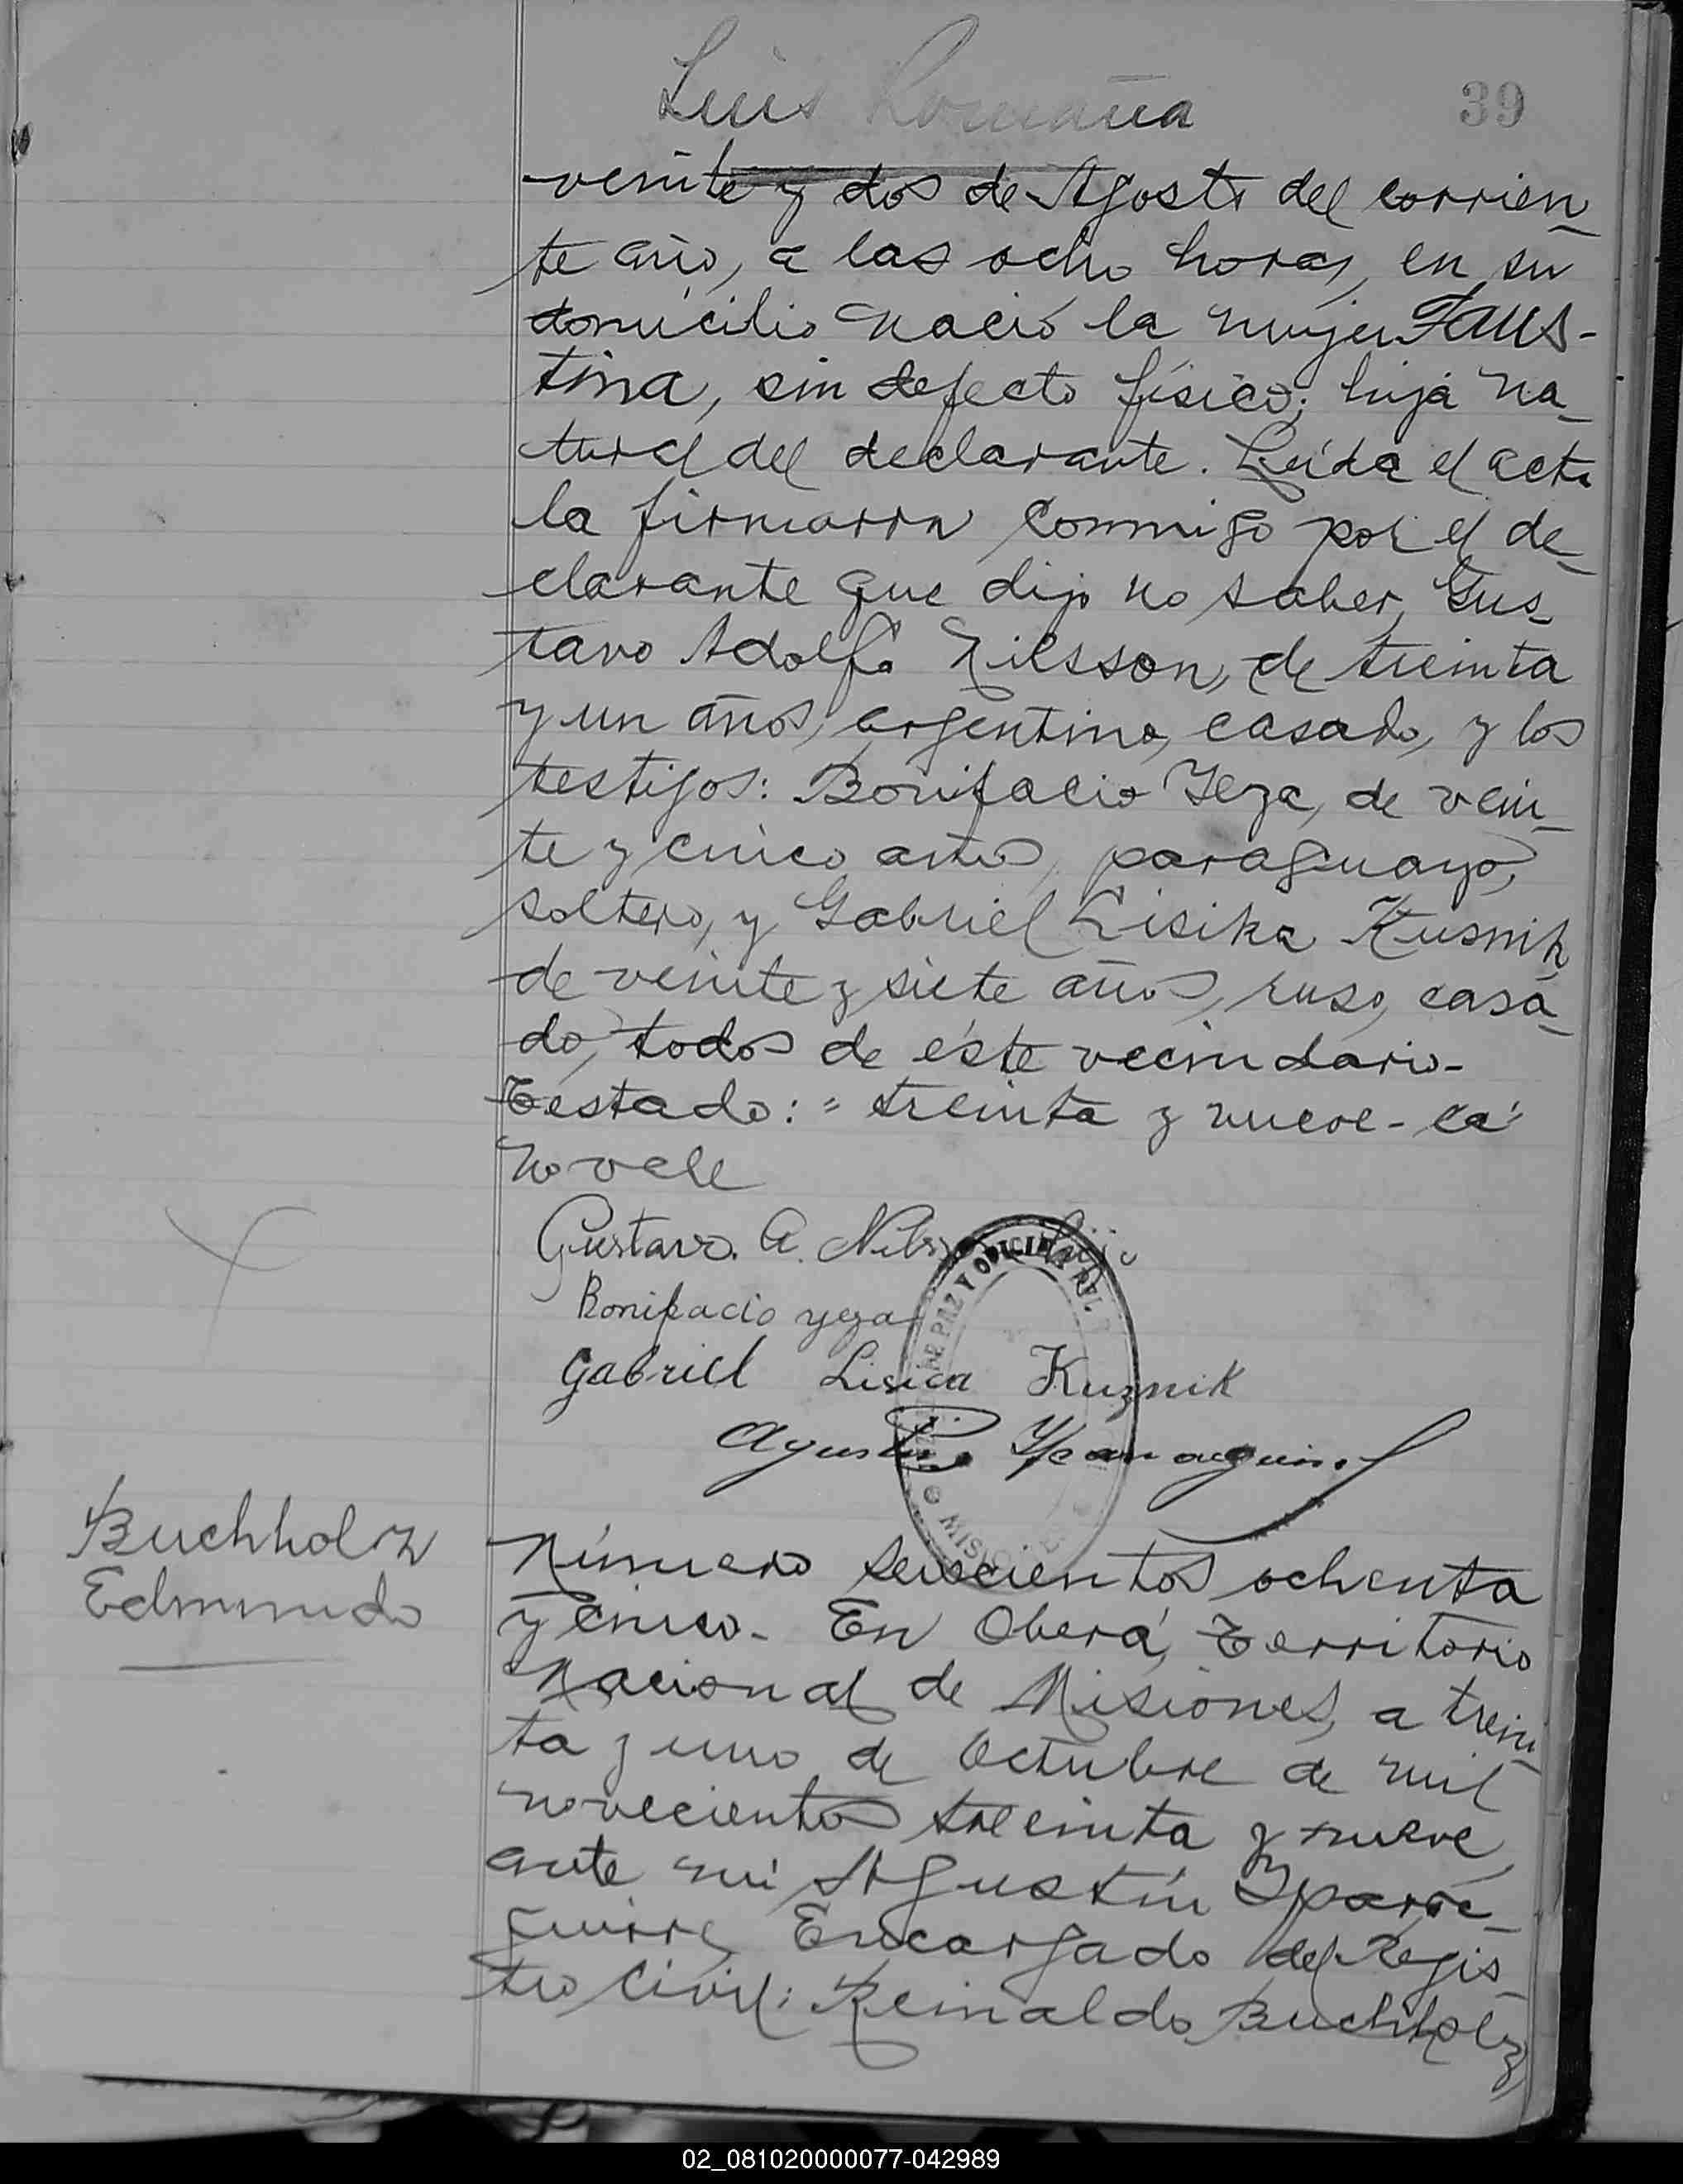 Luis Romaña
39
veinte y dos de Agosto del corrien-
te año, a las ocho horas, en su
domicilio nació la mujer Faus-
tina, sin defecto físico; hija na-
tural del declarante. Leída el acta
la firmaron conmigo por el de-
clarante que dijo no saber, Gus-
tavo Adolfo Nilsson, de treinta
y un años, argentino, casado, y los
testigos: Bonifacio Yeza, de vein-
te y cinco años, paraguayo,
soltero, y Gabriel Lisika Kusnik,
de veinte y siete años, ruso, casa-
do, todos de éste vecindario-
Testado: = treinta y nueve - ca
no vale
Gustavo. A. Nilsson hijo
Bonifacio yeza
Gabriel Lisica Kuznik
DE PAZ Y OFICINA DEL
MISIONES
Agustín
Buchholz
Edmundo
Número seiscientos ochenta
y cinco- En Oberá, Territorio
Nacional de Misiones, a trein-
ta y uno de Octubre de mil
novecientos treinta y nueve,
ante mí Agustín Yparra-
guirre, Encargado del Regis-
tro Civil: Reinaldo Buchholz,
02_081020000077-042989